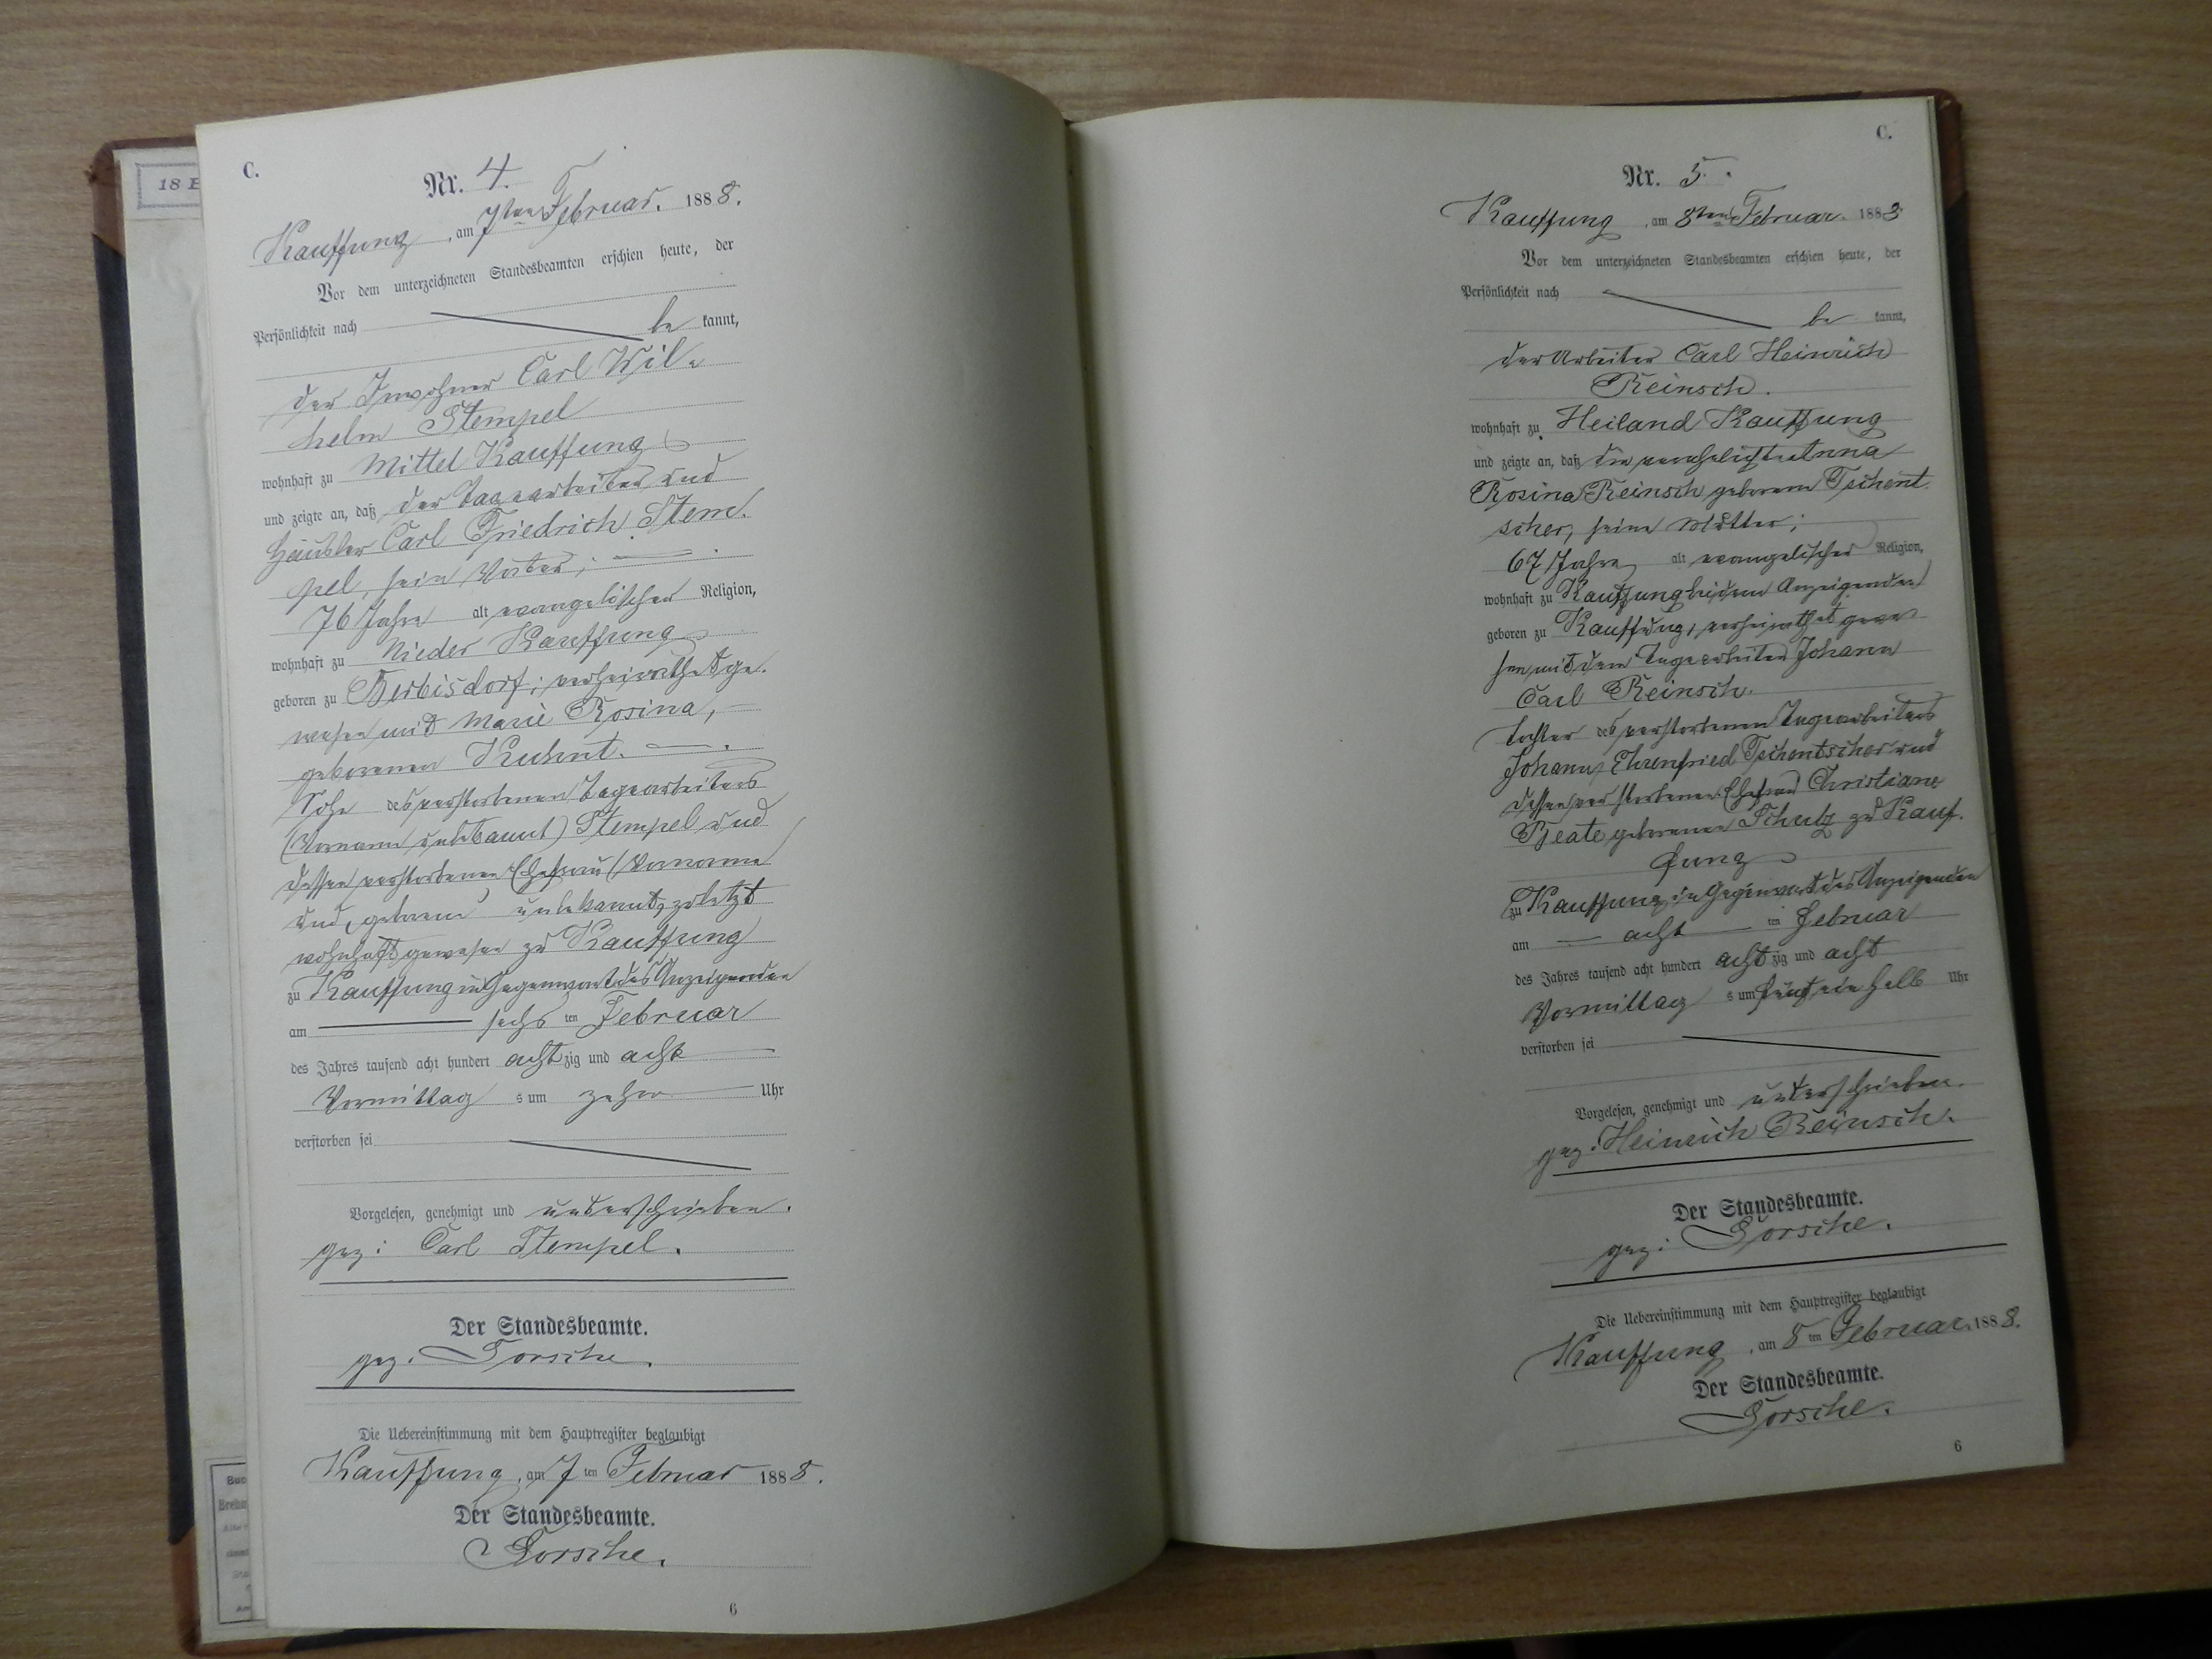 18 B
C.
Nr. 4.
Kauffung, am 7ten Februar. 1888.
Vor dem unterzeichneten Standesbeamten erschien heute, der
Persönlichkeit nach
be kannt,
der Inwohner Carl Wil-
helm Stempel
wohnhaft zu Mittel Kauffung
und zeigte an, daß der Tagearbeiter und
Häusler Carl Friedrich Stem-
pel, sein Vater;
76 Jahre alt evangelischer Religion,
wohnhaft zu Nieder Kauffung
geboren zu Berbisdorf; verheirathet ge-
wesen mit Marie Rosina,
geborenen Kuhnt.
Sohn des verstorbenen Tagearbeiters
(Vorname unbekannt) Stempel und
dessen verstorbenen Ehefrau (Vorname
und geborene) unbekannt, zuletzt
wohnhaft gewesen zu Kauffung
zu Kauffung in Gegenwart des Anzeigenden
am sechs ten Februar
des Jahres tausend acht hundert acht zig und acht
Vormittag s um zehn Uhr
verstorben sei
Vorgelesen, genehmigt und unterschrieben.
gez: Carl Stempel.
Der Standesbeamte.
gez. Gorsche.
Die Uebereinstimmung mit dem Hauptregister beglaubigt
Kauffung, am 7 ten Februar 1888.
Der Standesbeamte.
Gorsche.
6
C.
Nr. 5.
Kauffung, am 8ten Februar. 1888
Vor dem unterzeichneten Standesbeamten erschien heute, der
Persönlichkeit nach
be kannt,
der Arbeiter Carl Heinrich
Reinsch.
wohnhaft zu Heiland Kauffung
und zeigte an, daß die verehelichte Anna
Rosina Reinsch geborene Tschent-
scher, seine Mutter;
67 Jahre alt evangelischer Religion,
wohnhaft zu Kauffung bei dem Anzeigenden
geboren zu Kauffung, verheirathet gewe-
sen mit dem Tagearbeiter Johann
Carl Reinsch.
Tochter des verstorbenen Tagearbeiters
Johann Ehrenfried Tschentscher und
dessen verstorbenen Ehefrau Christiane
Beate geborenen Schulz zu Kauf-
fung
zu Kauffung in Gegenwart des Anzeigenden
am acht ten Februar
des Jahres tausend acht hundert acht zig und acht
Vormittag s um fünf ein halb Uhr
verstorben sei
Vorgelesen, genehmigt und unterschrieben.
gez. Heinrich Reinsch.
Der Standesbeamte.
gez: Gorsche.
Die Uebereinstimmung mit dem Hauptregister beglaubigt
Kauffung, am 8 ten Februar. 1888.
Der Standesbeamte.
Gorsche.
6